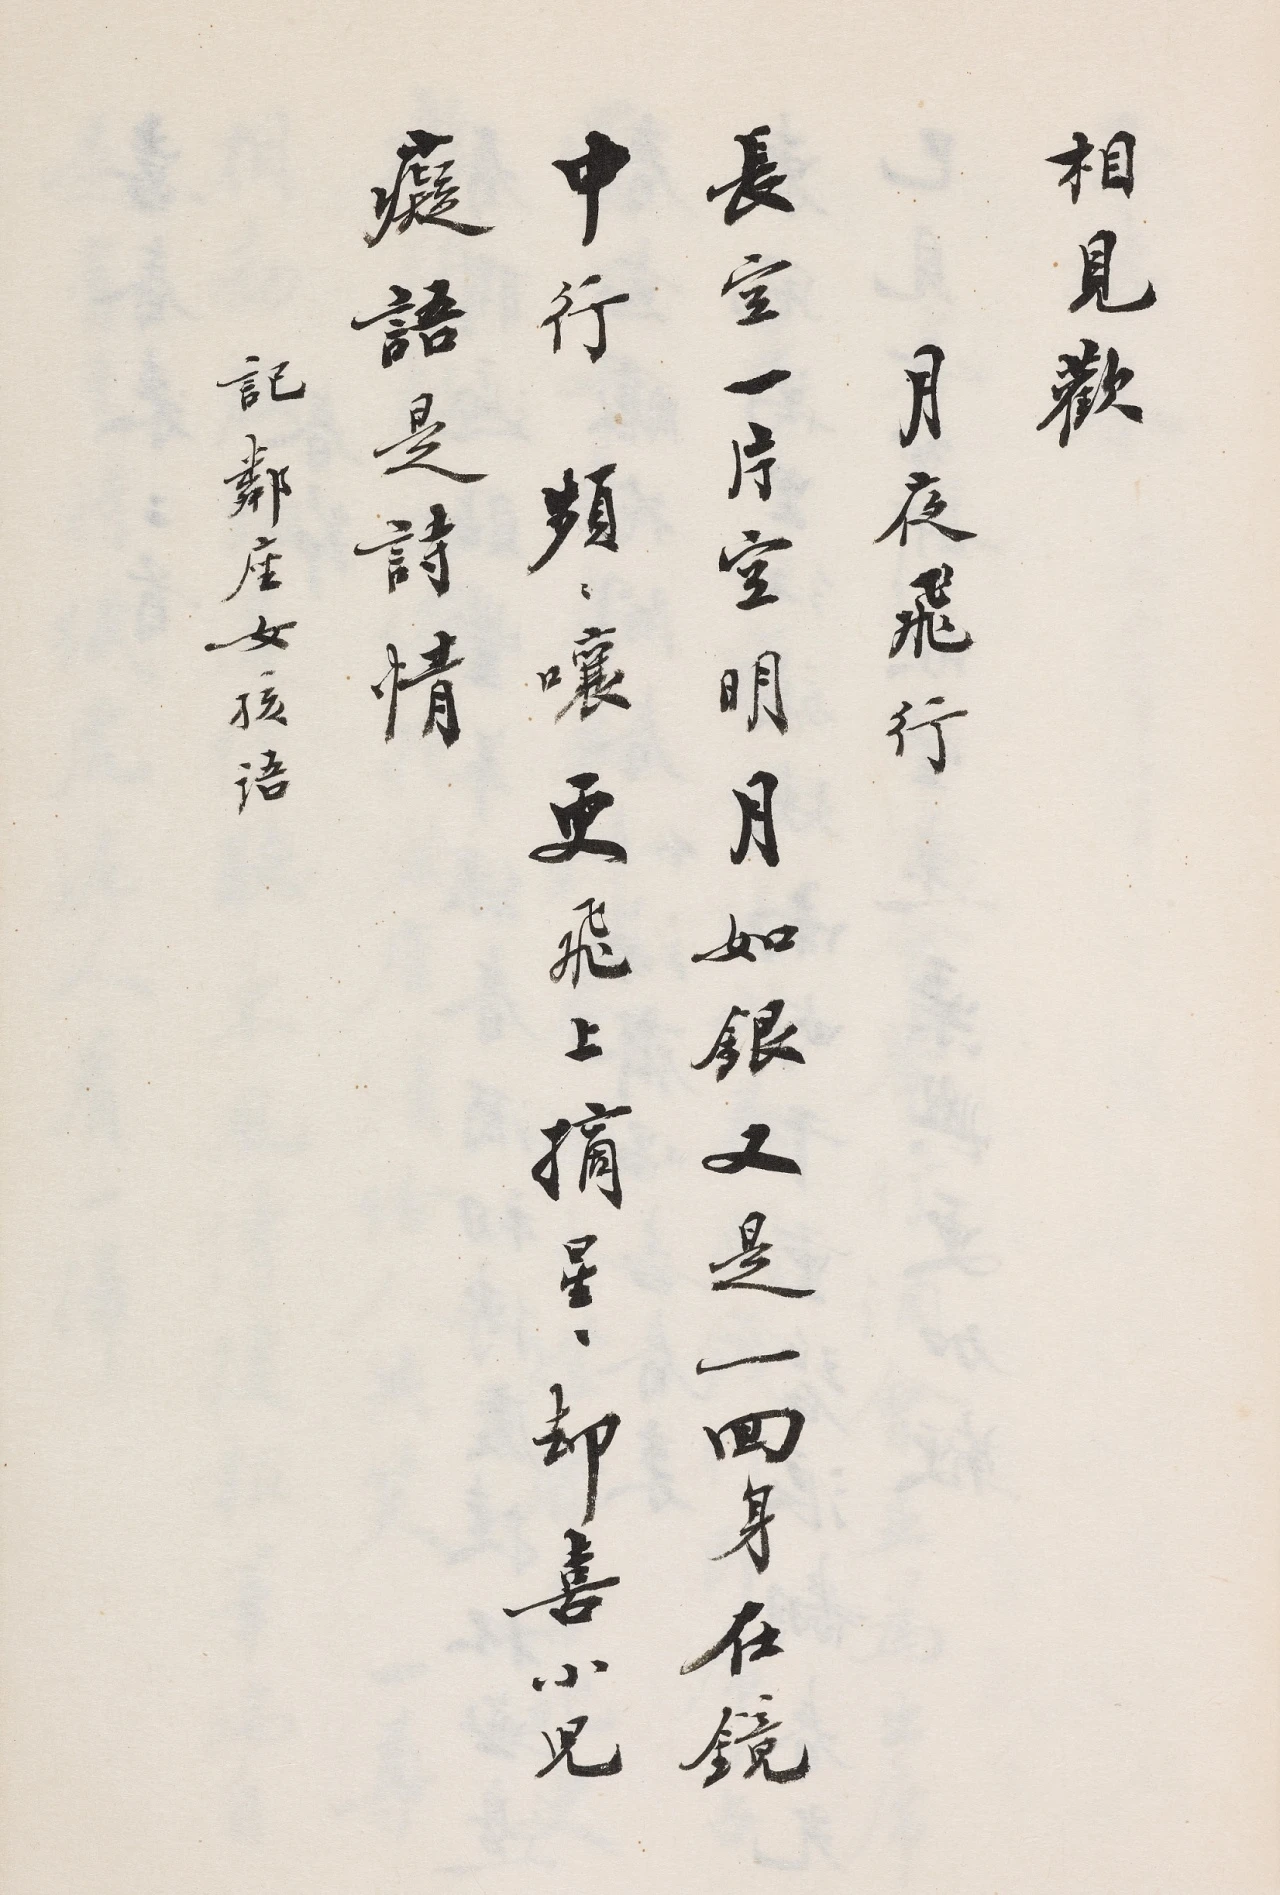 相見歡
月夜飛行
長空一片空明月如銀又是一回身在鏡
中行 頻〻嚷更飛上摘星〻却喜小児
癡語是詩情
記鄰座女孩語